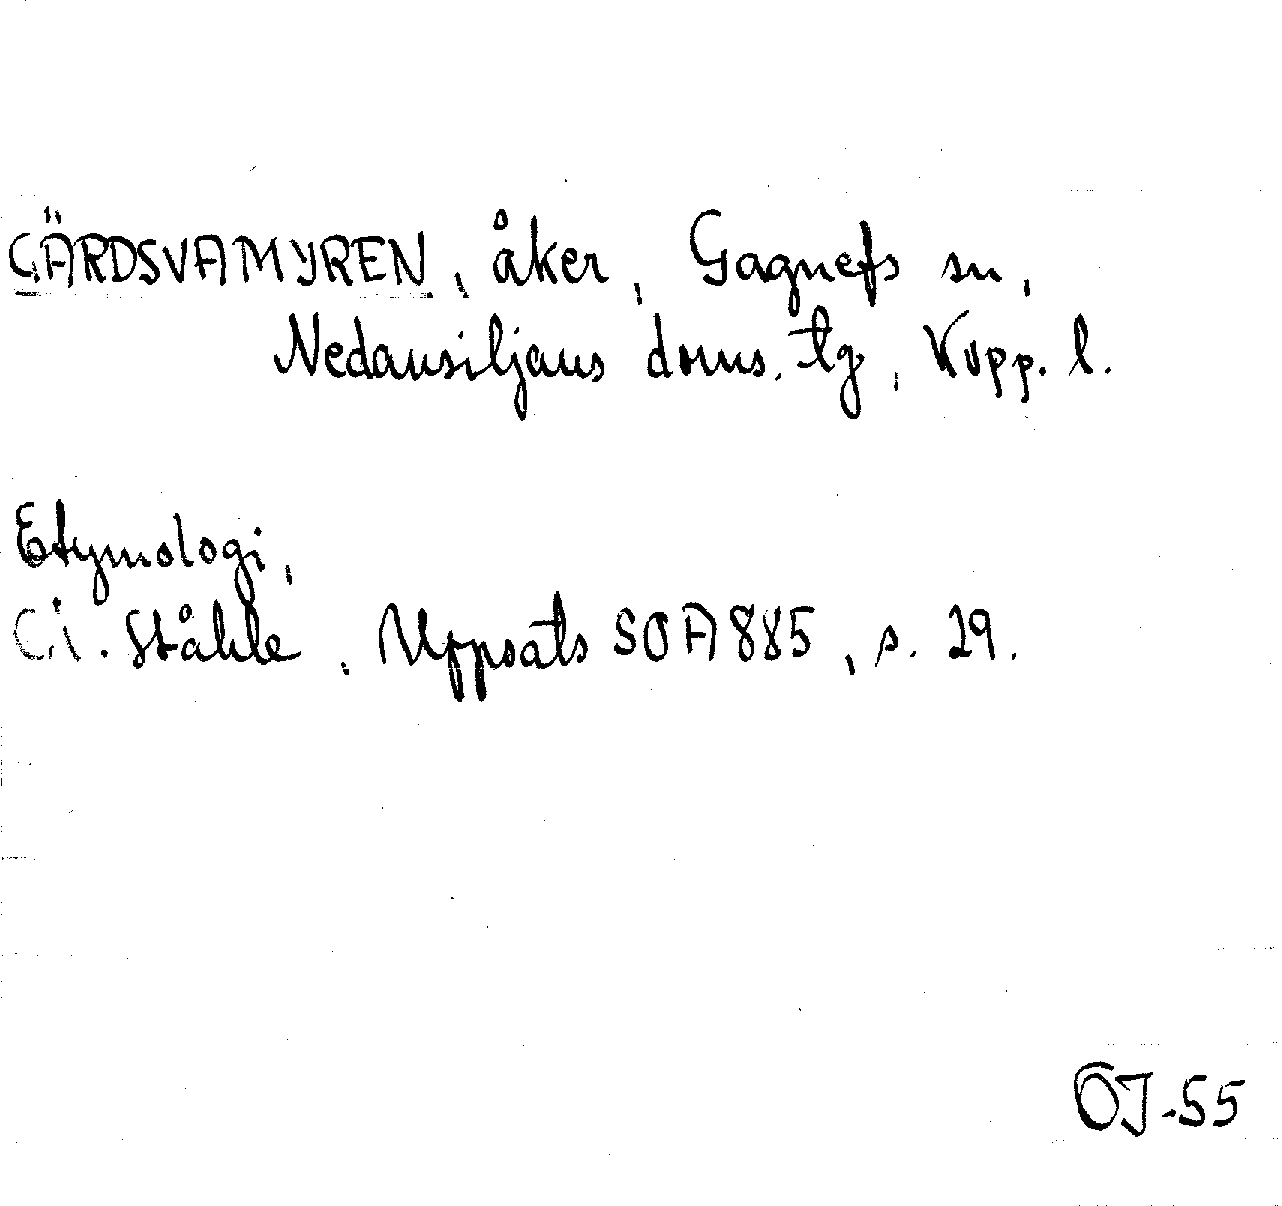 GÄRDSVAMYREN, åker, Gagnefs sn,
Nedansiljans doms. tg, Kopp. l.
Etymologi,
C.I. Ståhle, Uppsats SOA 885, s. 29.
OJ-55